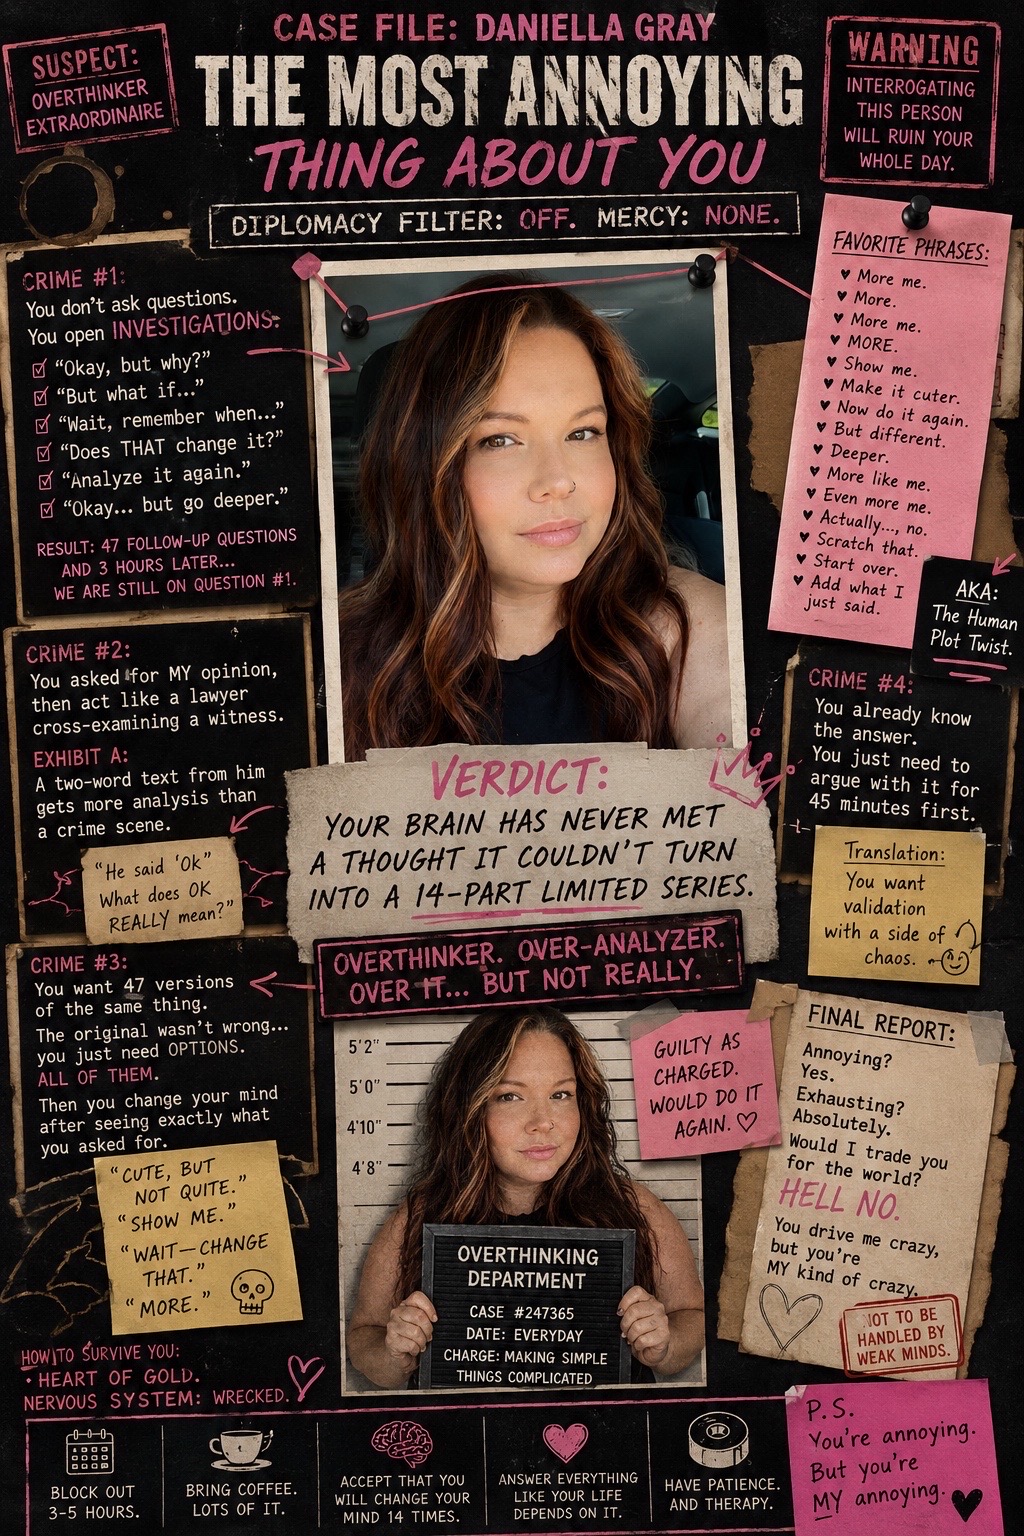 CASE FILE: DANIELLA GRAY
THE MOST ANNOYING
THING ABOUT YOU
DIPLOMACY FILTER: OFF. MERCY: NONE.
SUSPECT:
OVERTHINKER
EXTRAORDINAIRE
WARNING
INTERROGATING
THIS PERSON
WILL RUIN YOUR
WHOLE DAY.
CRIME #1:
You don't ask questions.
You open INVESTIGATIONS.
"Okay, but why?"
"But what if..."
"Wait, remember when..."
"Does THAT change it?"
"Analyze it again."
"Okay... but go deeper."
RESULT: 47 FOLLOW-UP QUESTIONS
AND 3 HOURS LATER...
WE ARE STILL ON QUESTION #1.
FAVORITE PHRASES:
♥ More me.
♥ More.
♥ More me.
♥ MORE.
♥ Show me.
♥ Make it cuter.
♥ Now do it again.
♥ But different.
♥ Deeper.
♥ More like me.
♥ Even more me.
♥ Actually..., no.
♥ Scratch that.
♥ Start over.
♥ Add what I
just said.
AKA:
The Human
Plot Twist.
CRIME #2:
You asked for MY opinion,
then act like a lawyer
cross-examining a witness.
EXHIBIT A:
A two-word text from him
gets more analysis than
a crime scene.
"He said 'Ok"
What does OK
REALLY mean?"
VERDICT:
YOUR BRAIN HAS NEVER MET
A THOUGHT IT COULDN'T TURN
INTO A 14-PART LIMITED SERIES.
OVERTHINKER. OVER-ANALYZER.
OVER IT... BUT NOT REALLY.
CRIME #4:
You already know
the answer.
You just need to
argue with it for
45 minutes first.
Translation:
You want
validation
with a side of
chaos.
CRIME #3:
You want 47 versions
of the same thing.
The original wasn't wrong...
you just need OPTIONS.
ALL OF THEM.
Then you change your mind
after seeing exactly what
you asked for.
"CUTE, BUT
NOT QUITE."
"SHOW ME."
"WAIT—CHANGE
THAT."
"MORE."
5'2"
5'0"
4'10"
4'8"
OVERTHINKING
DEPARTMENT
CASE #247365
DATE: EVERYDAY
CHARGE: MAKING SIMPLE
THINGS COMPLICATED
GUILTY AS
CHARGED.
WOULD DO IT
AGAIN. ♡
FINAL REPORT:
Annoying?
Yes.
Exhausting?
Absolutely.
Would I trade you
for the world?
HELL NO.
You drive me crazy,
but you're
MY kind of crazy.
NOT TO BE
HANDLED BY
WEAK MINDS.
HOW TO SURVIVE YOU:
• HEART OF GOLD.
NERVOUS SYSTEM: WRECKED.
BLOCK OUT
3-5 HOURS.
BRING COFFEE.
LOTS OF IT.
ACCEPT THAT YOU
WILL CHANGE YOUR
MIND 14 TIMES.
ANSWER EVERYTHING
LIKE YOUR LIFE
DEPENDS ON IT.
HAVE PATIENCE.
AND THERAPY.
P.S.
You're annoying.
But you're
MY annoying.